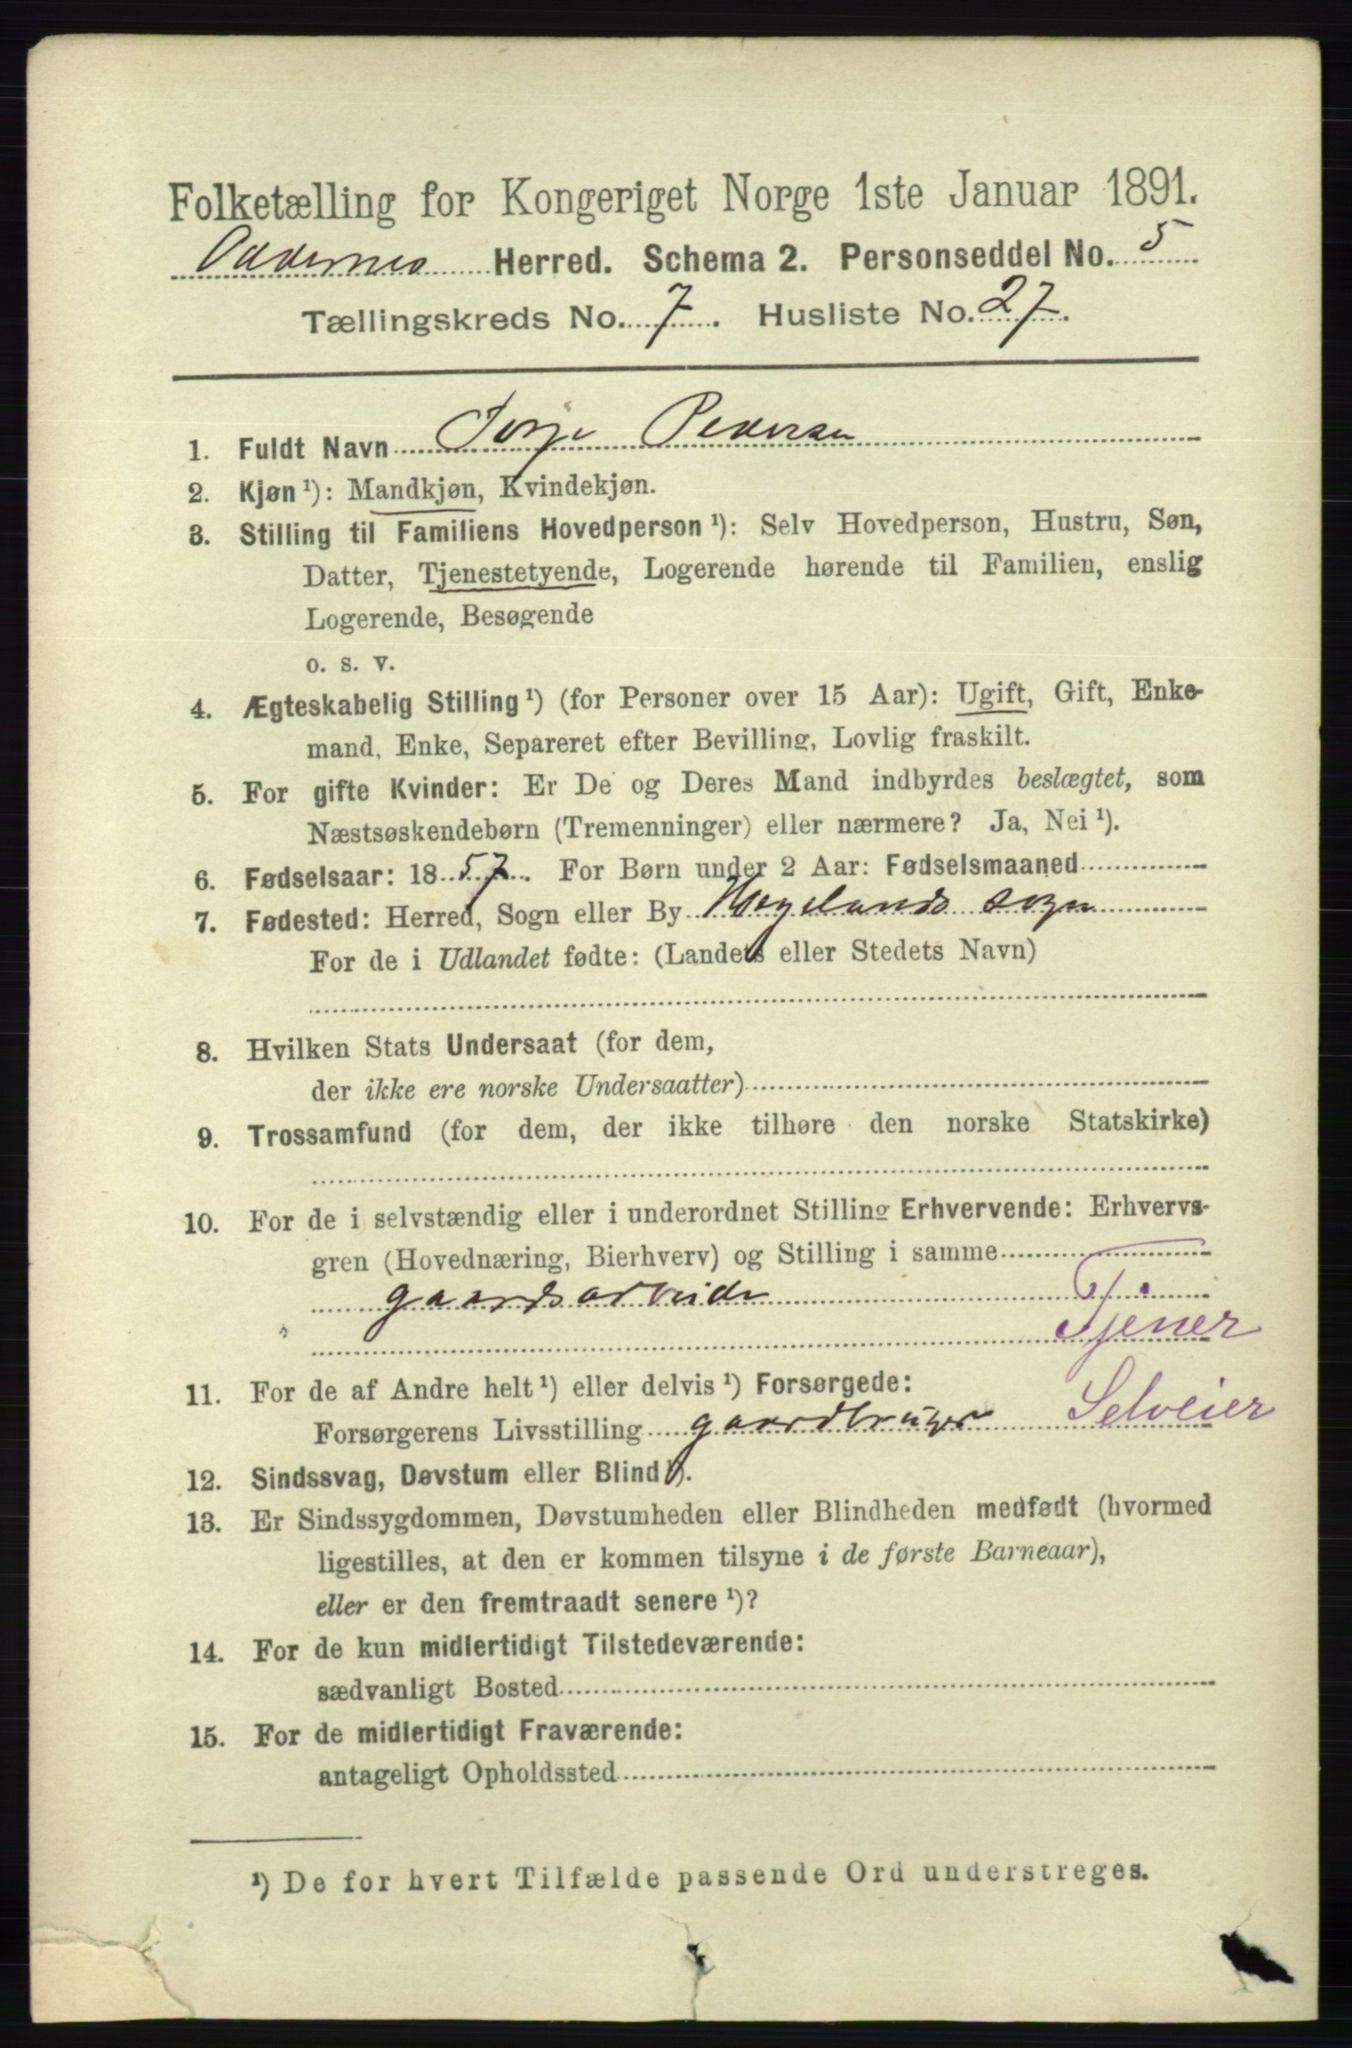 Folketælling for Kongeriget Norge 1ste Januar 1891.
Oddernes Herred. Schema 2. Personseddel No. 5
Tællingskreds No. 7. Husliste No. 27.
1. Fuldt Navn Torje Pedersen
2. Kjøn ¹): Mandkjøn, Kvindekjøn.
3. Stilling til Familiens Hovedperson ¹): Selv Hovedperson, Hustru, Søn,
Datter, Tjenestetyende, Logerende hørende til Familien, enslig
Logerende, Besøgende
o. s. v.
4. Ægteskabelig Stilling ¹) (for Personer over 15 Aar): Ugift, Gift, Enke-
mand, Enke, Separeret efter Bevilling, Lovlig fraskilt.
5. For gifte Kvinder: Er De og Deres Mand indbyrdes beslægtet, som
Næstsøskendebørn (Tremenninger) eller nærmere? Ja, Nei ¹).
6. Fødselsaar: 1857. For Børn under 2 Aar: Fødselsmaaned
7. Fødested: Herred, Sogn eller By Hægelands sogn
For de i Udlandet fødte: (Landets eller Stedets Navn)
8. Hvilken Stats Undersaat (for dem,
der ikke ere norske Undersaatter)
9. Trossamfund (for dem, der ikke tilhøre den norske Statskirke)
10. For de i selvstændig eller i underordnet Stilling Erhvervende: Erhvervs-
gren (Hovednæring, Bierhverv) og Stilling i samme
gaardsarbeide
Tjener
11. For de af Andre helt ¹) eller delvis ¹) Forsørgede:
Forsørgerens Livsstilling gaardbruger Selveier
12. Sindssvag, Døvstum eller Blind ¹).
13. Er Sindssygdommen, Døvstumheden eller Blindheden medfødt (hvormed
ligestilles, at den er kommen tilsyne i de første Barneaar),
eller er den fremtraadt senere ¹)?
14. For de kun midlertidigt Tilstedeværende:
sædvanligt Bosted
15. For de midlertidigt Fraværende:
antageligt Opholdssted
¹) De for hvert Tilfælde passende Ord understreges.